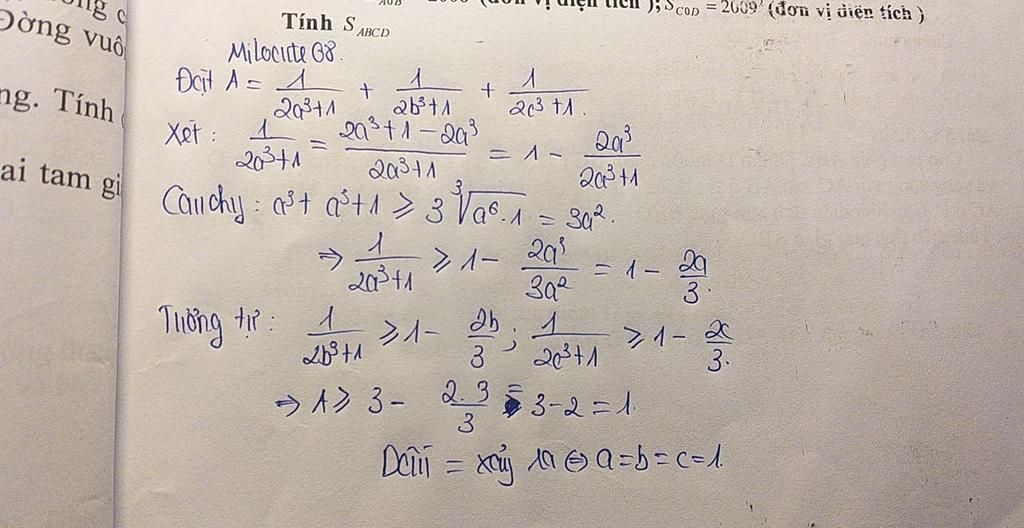 ng c
Dòng vuô
ng. Tính
ai tam gi
(đơn vị diện tích); S_COD = 2009² (đơn vị diện tích)
Tính S_ABCD
Milocute 08.
Đặt A = 1/(2a³+1) + 1/(2b³+1) + 1/(2c³+1).
Xét: 1/(2a³+1) = (2a³+1-2a³)/(2a³+1) = 1 - 2a³/(2a³+1)
Cauchy: a³ + a³ + 1 ≥ 3∛(a⁶.1) = 3a².
⇒ 1/(2a³+1) ≥ 1 - 2a³/3a² = 1 - 2a/3.
Tương tự: 1/(2b³+1) ≥ 1 - 2b/3; 1/(2c³+1) ≥ 1 - 2c/3.
⇒ A ≥ 3 - 2.3/3 = 3 - 2 = 1.
Dấu = xảy ra ⇔ a=b=c=1.